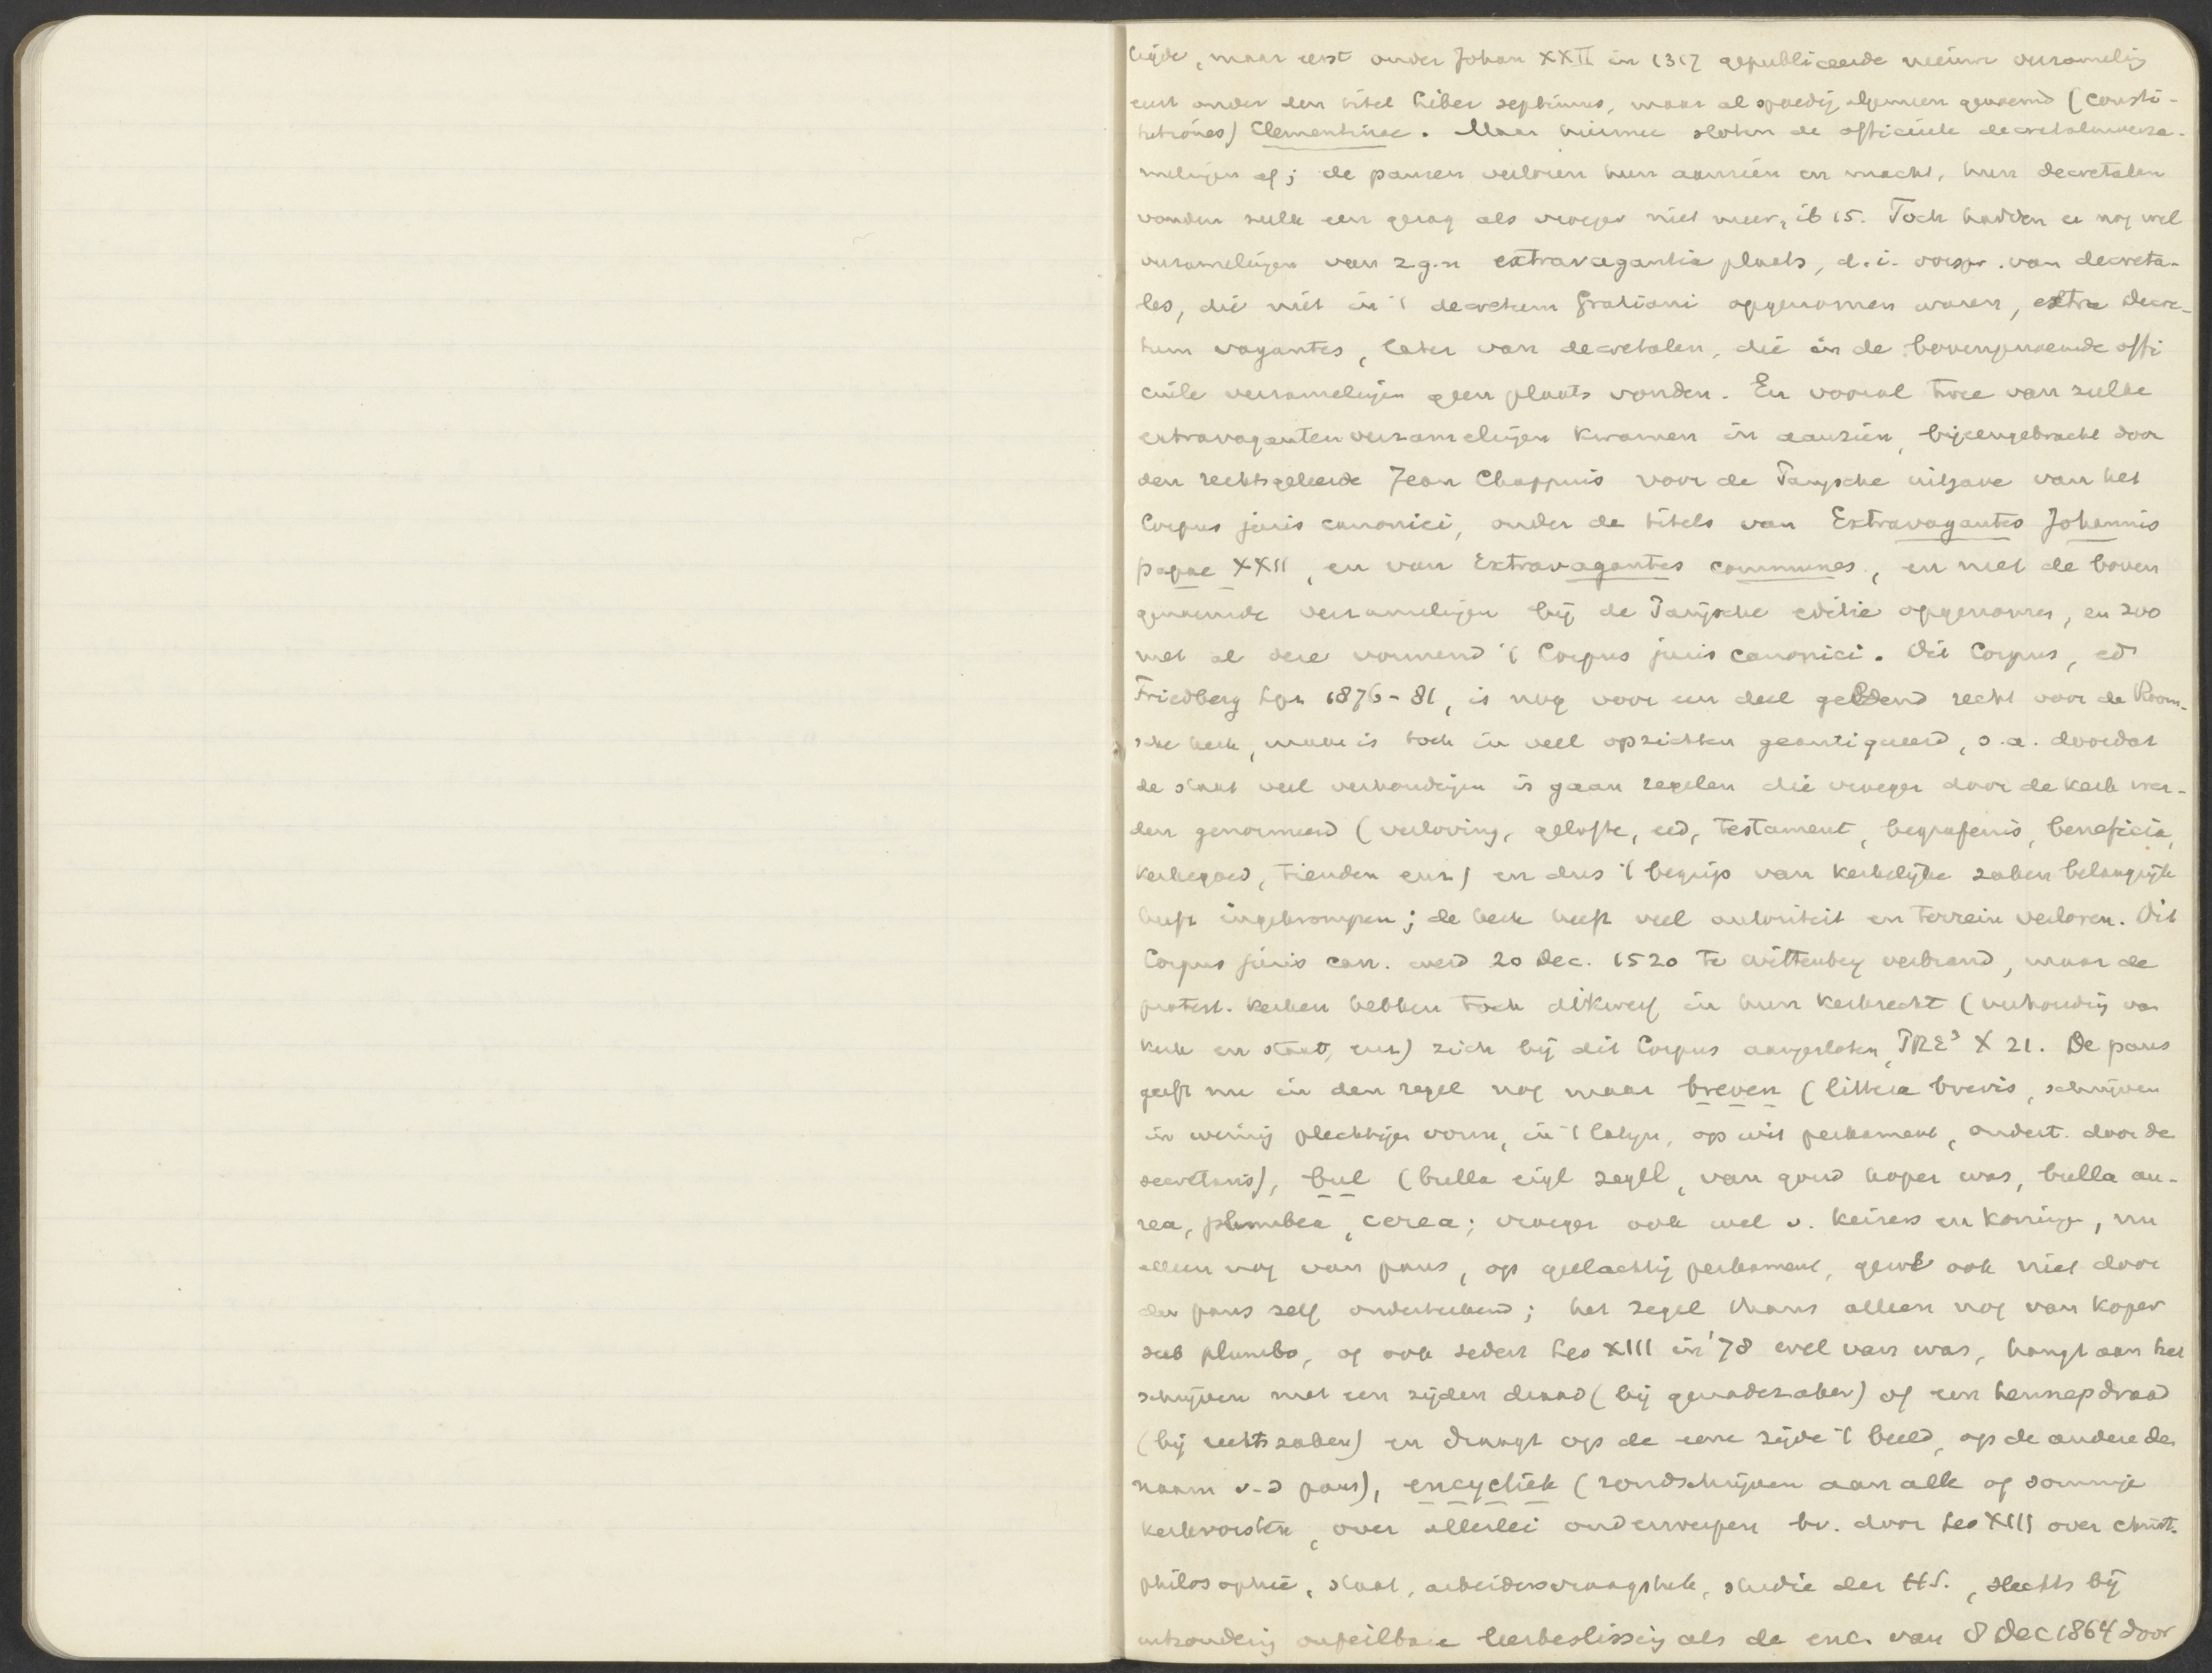 lijde, maar eerst onder Johan XXII in 1317 gepubliceerde nieuwe verzameling
eerst onder den titel liber septimus, maar al spoedig algemeen genoemd (consti-
tutiones) Clementinae. Maar hiermee sloten de officieele decretalenverza-
melingen af; de pausen verloren hun aanzien en macht, hun decretalen
vonden zulk een gezag als vroeger niet meer, ib 15. Toch hadden er nog wel
verzamelingen van z.g.n extravagantia plaats, d.i. oorspr. van decreta-
les, die niet in 't decretum Gratiani opgenomen waren, extra decre-
tum vagantes, later van decretalen, die in de bovengenoemde offi
cieele verzamelingen geen plaats vonden. En vooral twee van zulke
extravagantenverzamelingen kwamen in aanzien, bijeengebracht door
den rechtsgeleerde Jean Chappuis voor de Parijsche uitgave van het
Corpus juris canonici, onder de titels van Extravagantes Johannis
papae XXII, en van Extravagantes communes, en met de boven
genoemde verzamelingen bij de Parijsche editie opgenomen, en zoo
met al deze vormend 't Corpus juris canonici. Dit Corpus, ed
Friedberg Lpz 1876-81, is nog voor een deel geldend recht voor de Room-
sche kerk, maar is toch in veel opzichten geantiqueerd, o.a. doordat
de staat veel verhoudingen is gaan regelen die vroeger door de kerk wer-
den genormeerd (verloving, gelofte, eed, testament, begrafenis, beneficia,
kerkegoed, tienden enz) en dus 't begrip van kerkelijke zaken belangrijk
heeft ingekrompen; de kerk heeft veel autoriteit en terrein verloren. Dit
Corpus juris can. werd 20 Dec. 1520 te Wittenberg verbrand, maar de
protest. kerken hebben toch dikwerf in hun kerkrecht (verhouding van
kerk en staat, enz) zich bij dit Corpus aangesloten, PRE³ X 21. De paus
geeft nu in den regel nog maar breven (littera brevis, schrijven
in weinig plechtigen vorm, in 't Latijn, op wit perkament, ondert. door de
secretaris), bul (bulla eigl zegel, van goud koper was, bulla au-
rea, plumbea, cerea; vroeger ook wel v. keizers en koningen, nu
alleen nog van paus, op geelachtig perkament, gewl ook niet door
den paus zelf onderteekend; het zegel thans alleen nog van koper
sub plumbo, of ook sedert Leo XIII in '78 wel van was, hangt aan het
schrijven met een zijden draad (bij genadezaken) of een hennepdraad
(bij rechtszaken) en draagt op de eene zijde 't beeld, op de andere den
naam v.d paus), encycliek (rondschrijven aan alle of sommige
kerkvorsten, over allerlei onderwerpen bv. door Leo XIII over christ.
philosophie, staat, arbeidersvraagstuk, studie der H.S., slechts bij
uitzondering onfeilbare leerbeslissing als de enc. van 8 Dec 1864 door